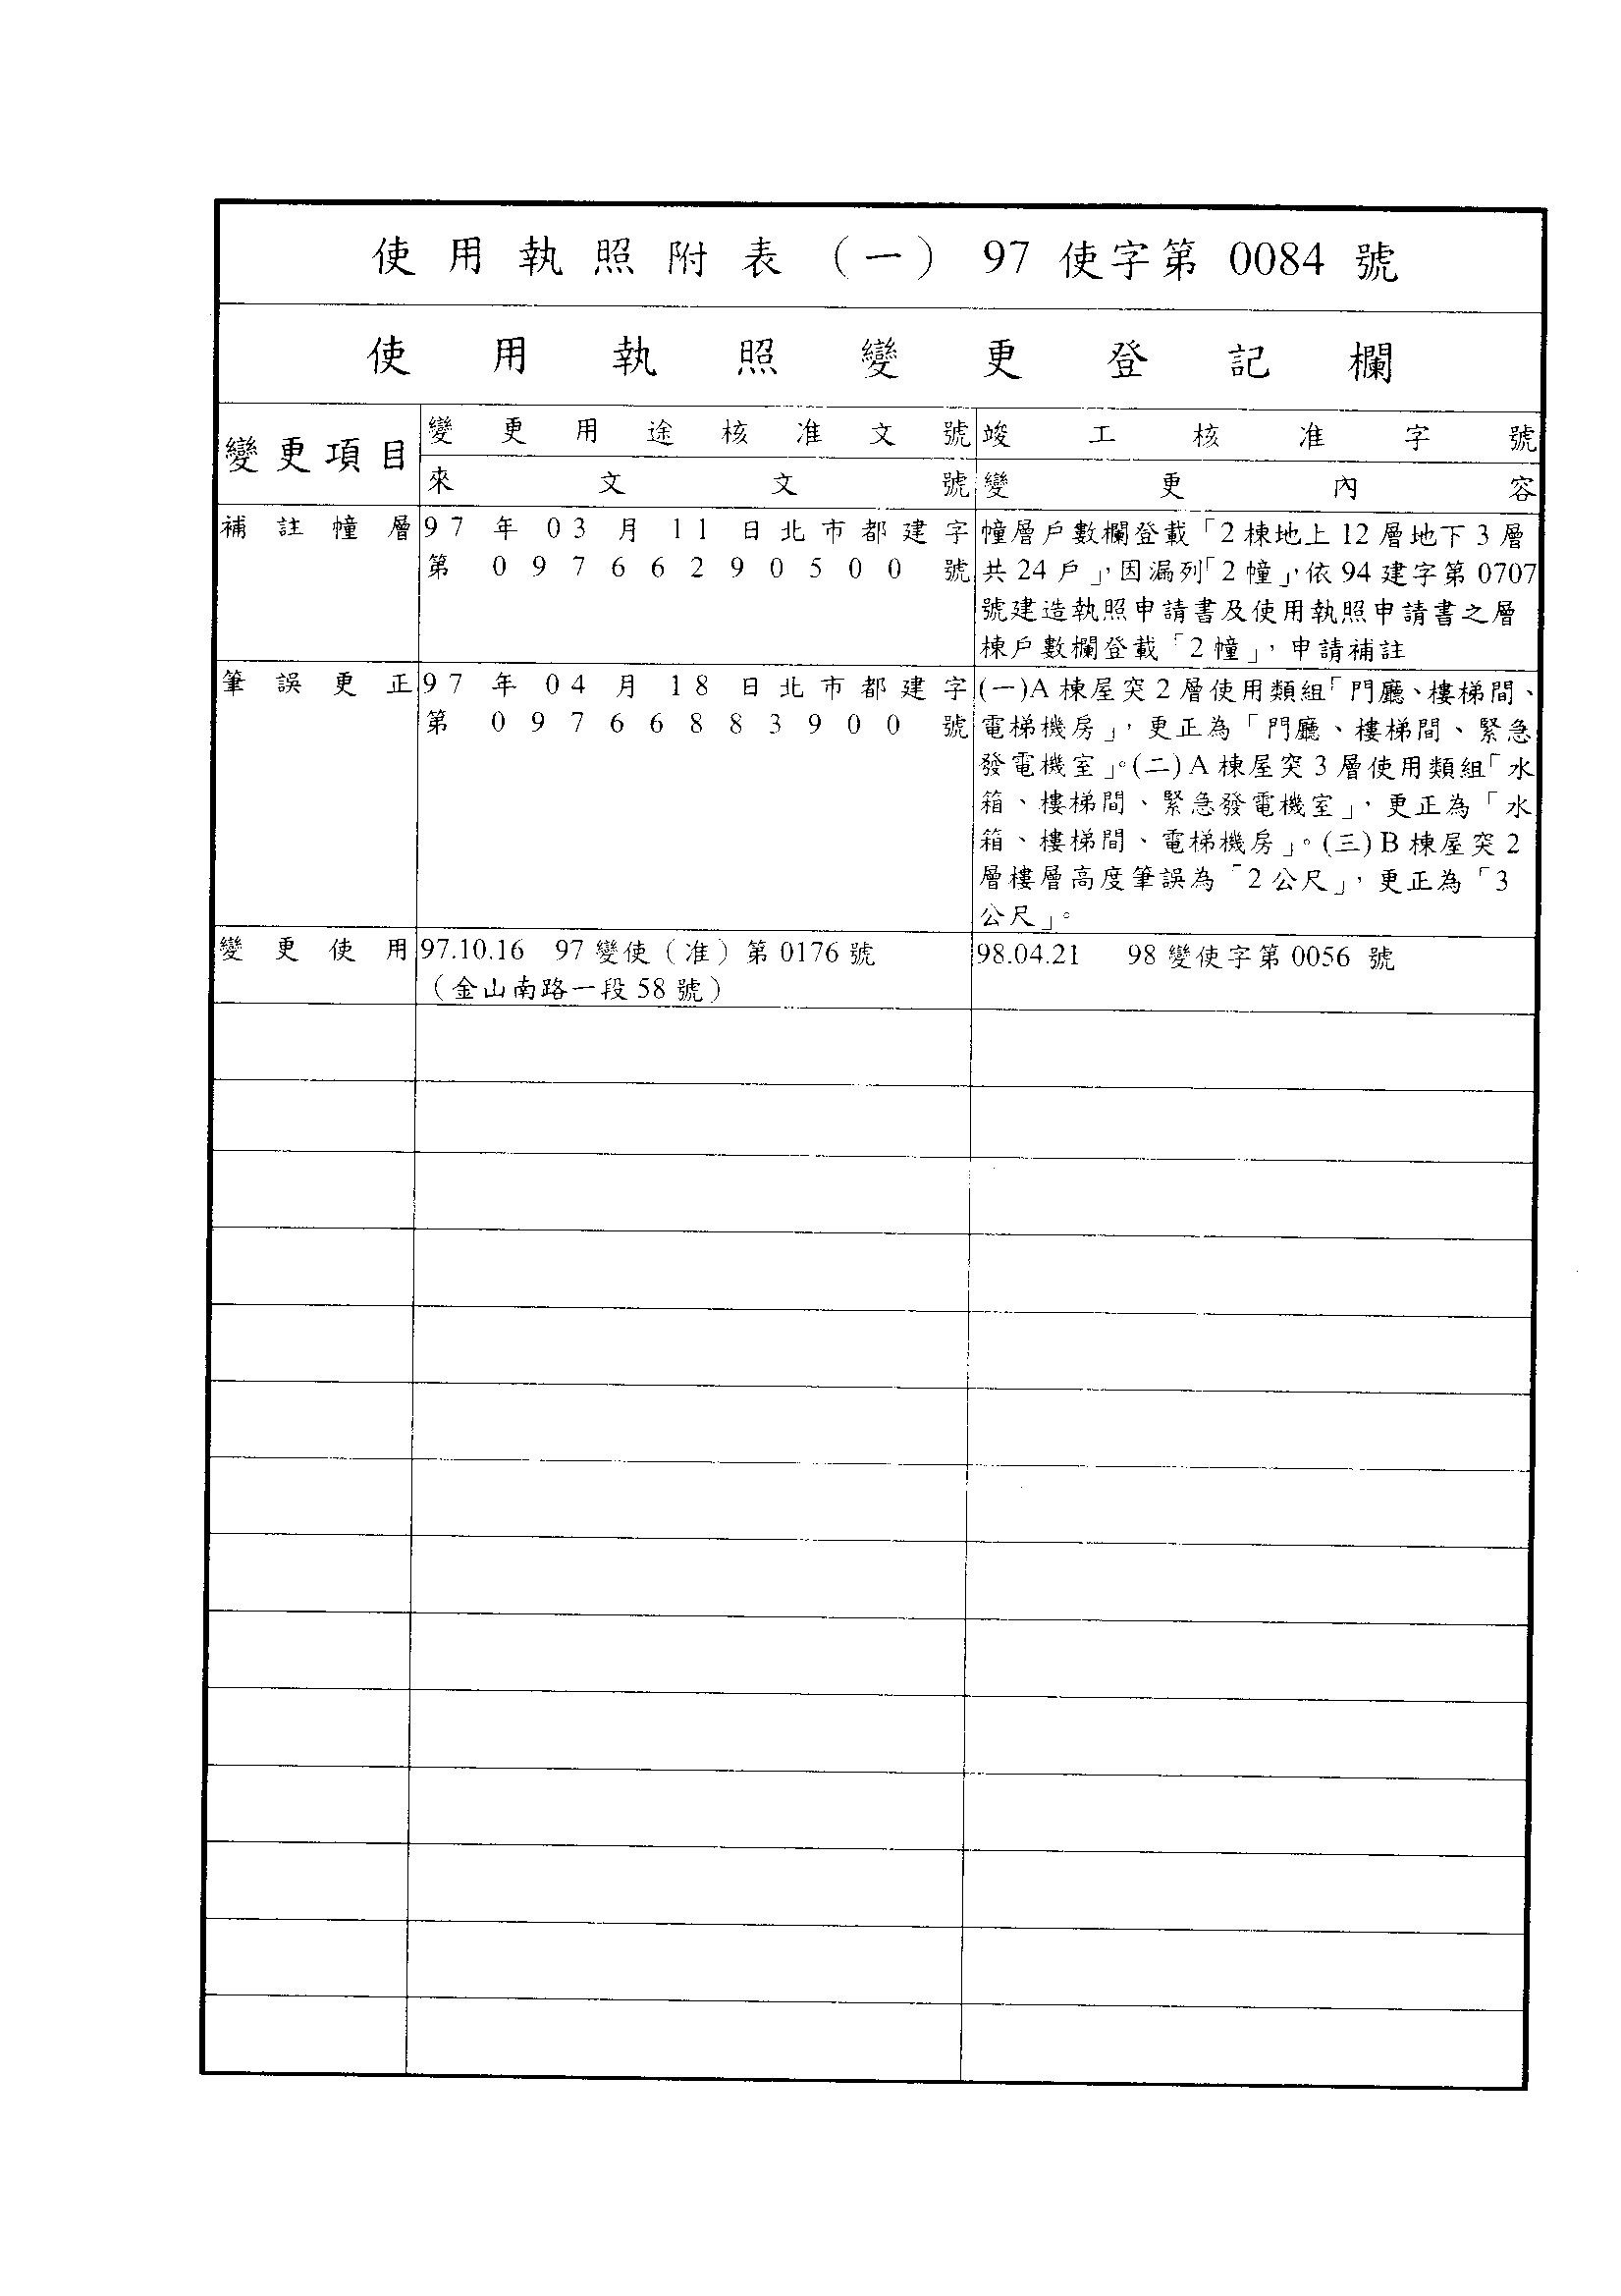 使用執照附表（一）97 使字第 0084 號
使用執照變更登記欄
變更項目
變更用途核准文號
竣工核准字號
來文文號
變更內容
補註幢層
97年03月11日北市都建字
第09766290500號
幢層戶數欄登載「2棟地上12層地下3層
共24戶」，因漏列「2幢」，依94建字第0707
號建造執照申請書及使用執照申請書之層
棟戶數欄登載「2幢」，申請補註
筆誤更正
97年04月18日北市都建字
第09766883900號
(一)A棟屋突2層使用類組「門廳、樓梯間、
電梯機房」，更正為「門廳、樓梯間、緊急
發電機室」。(二)A棟屋突3層使用類組「水
箱、樓梯間、緊急發電機室」，更正為「水
箱、樓梯間、電梯機房」。(三)B棟屋突2
層樓層高度筆誤為「2公尺」，更正為「3
公尺」。
變更使用
97.10.16 97變使（准）第0176號
（金山南路一段58號）
98.04.21 98變使字第0056 號